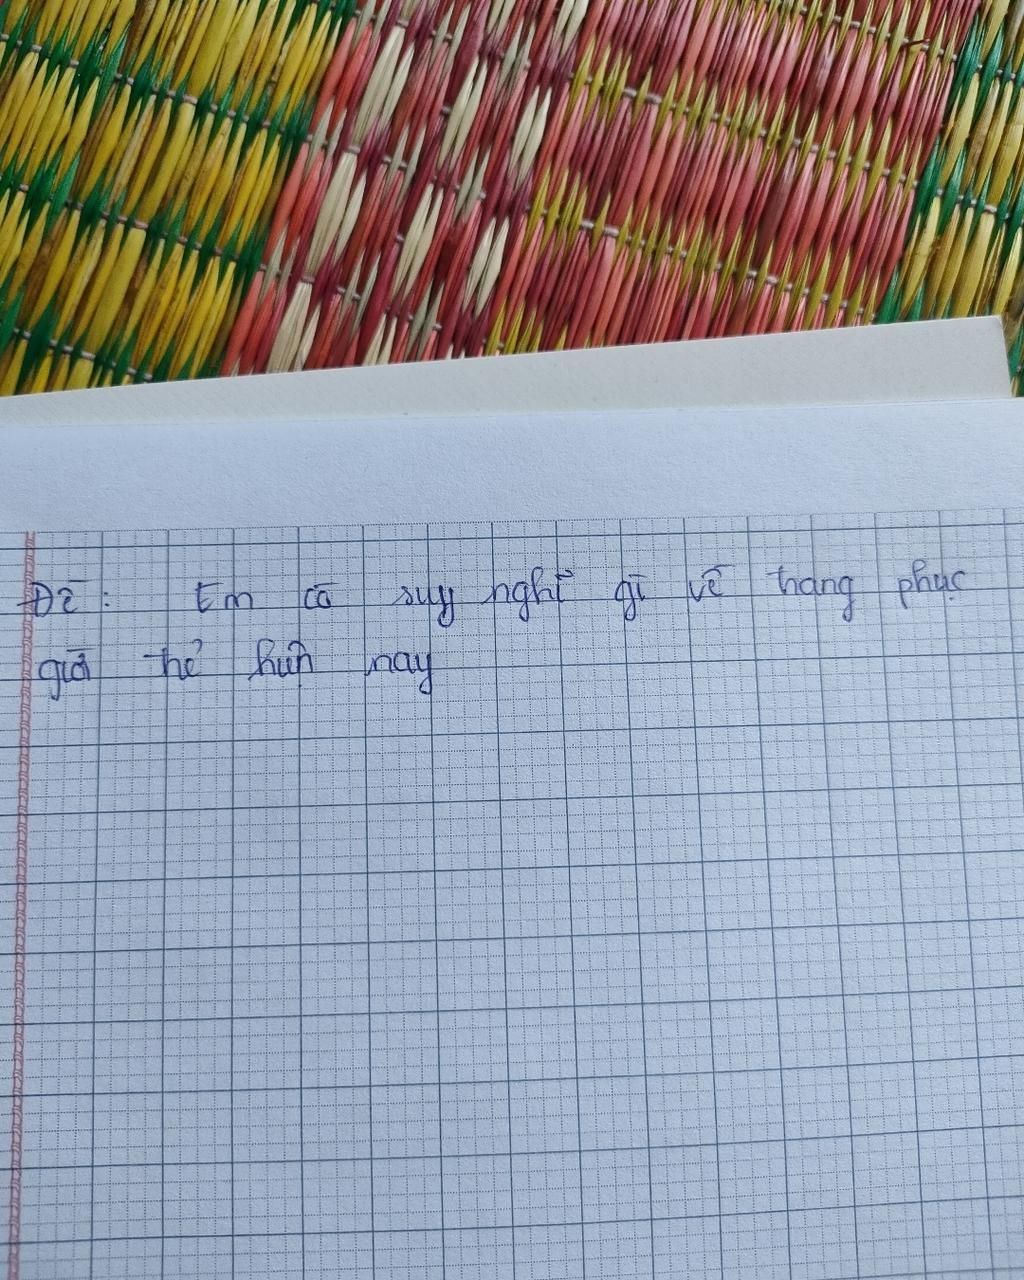 Đề: Em có suy nghĩ gì về trang phục
giới trẻ hiện nay